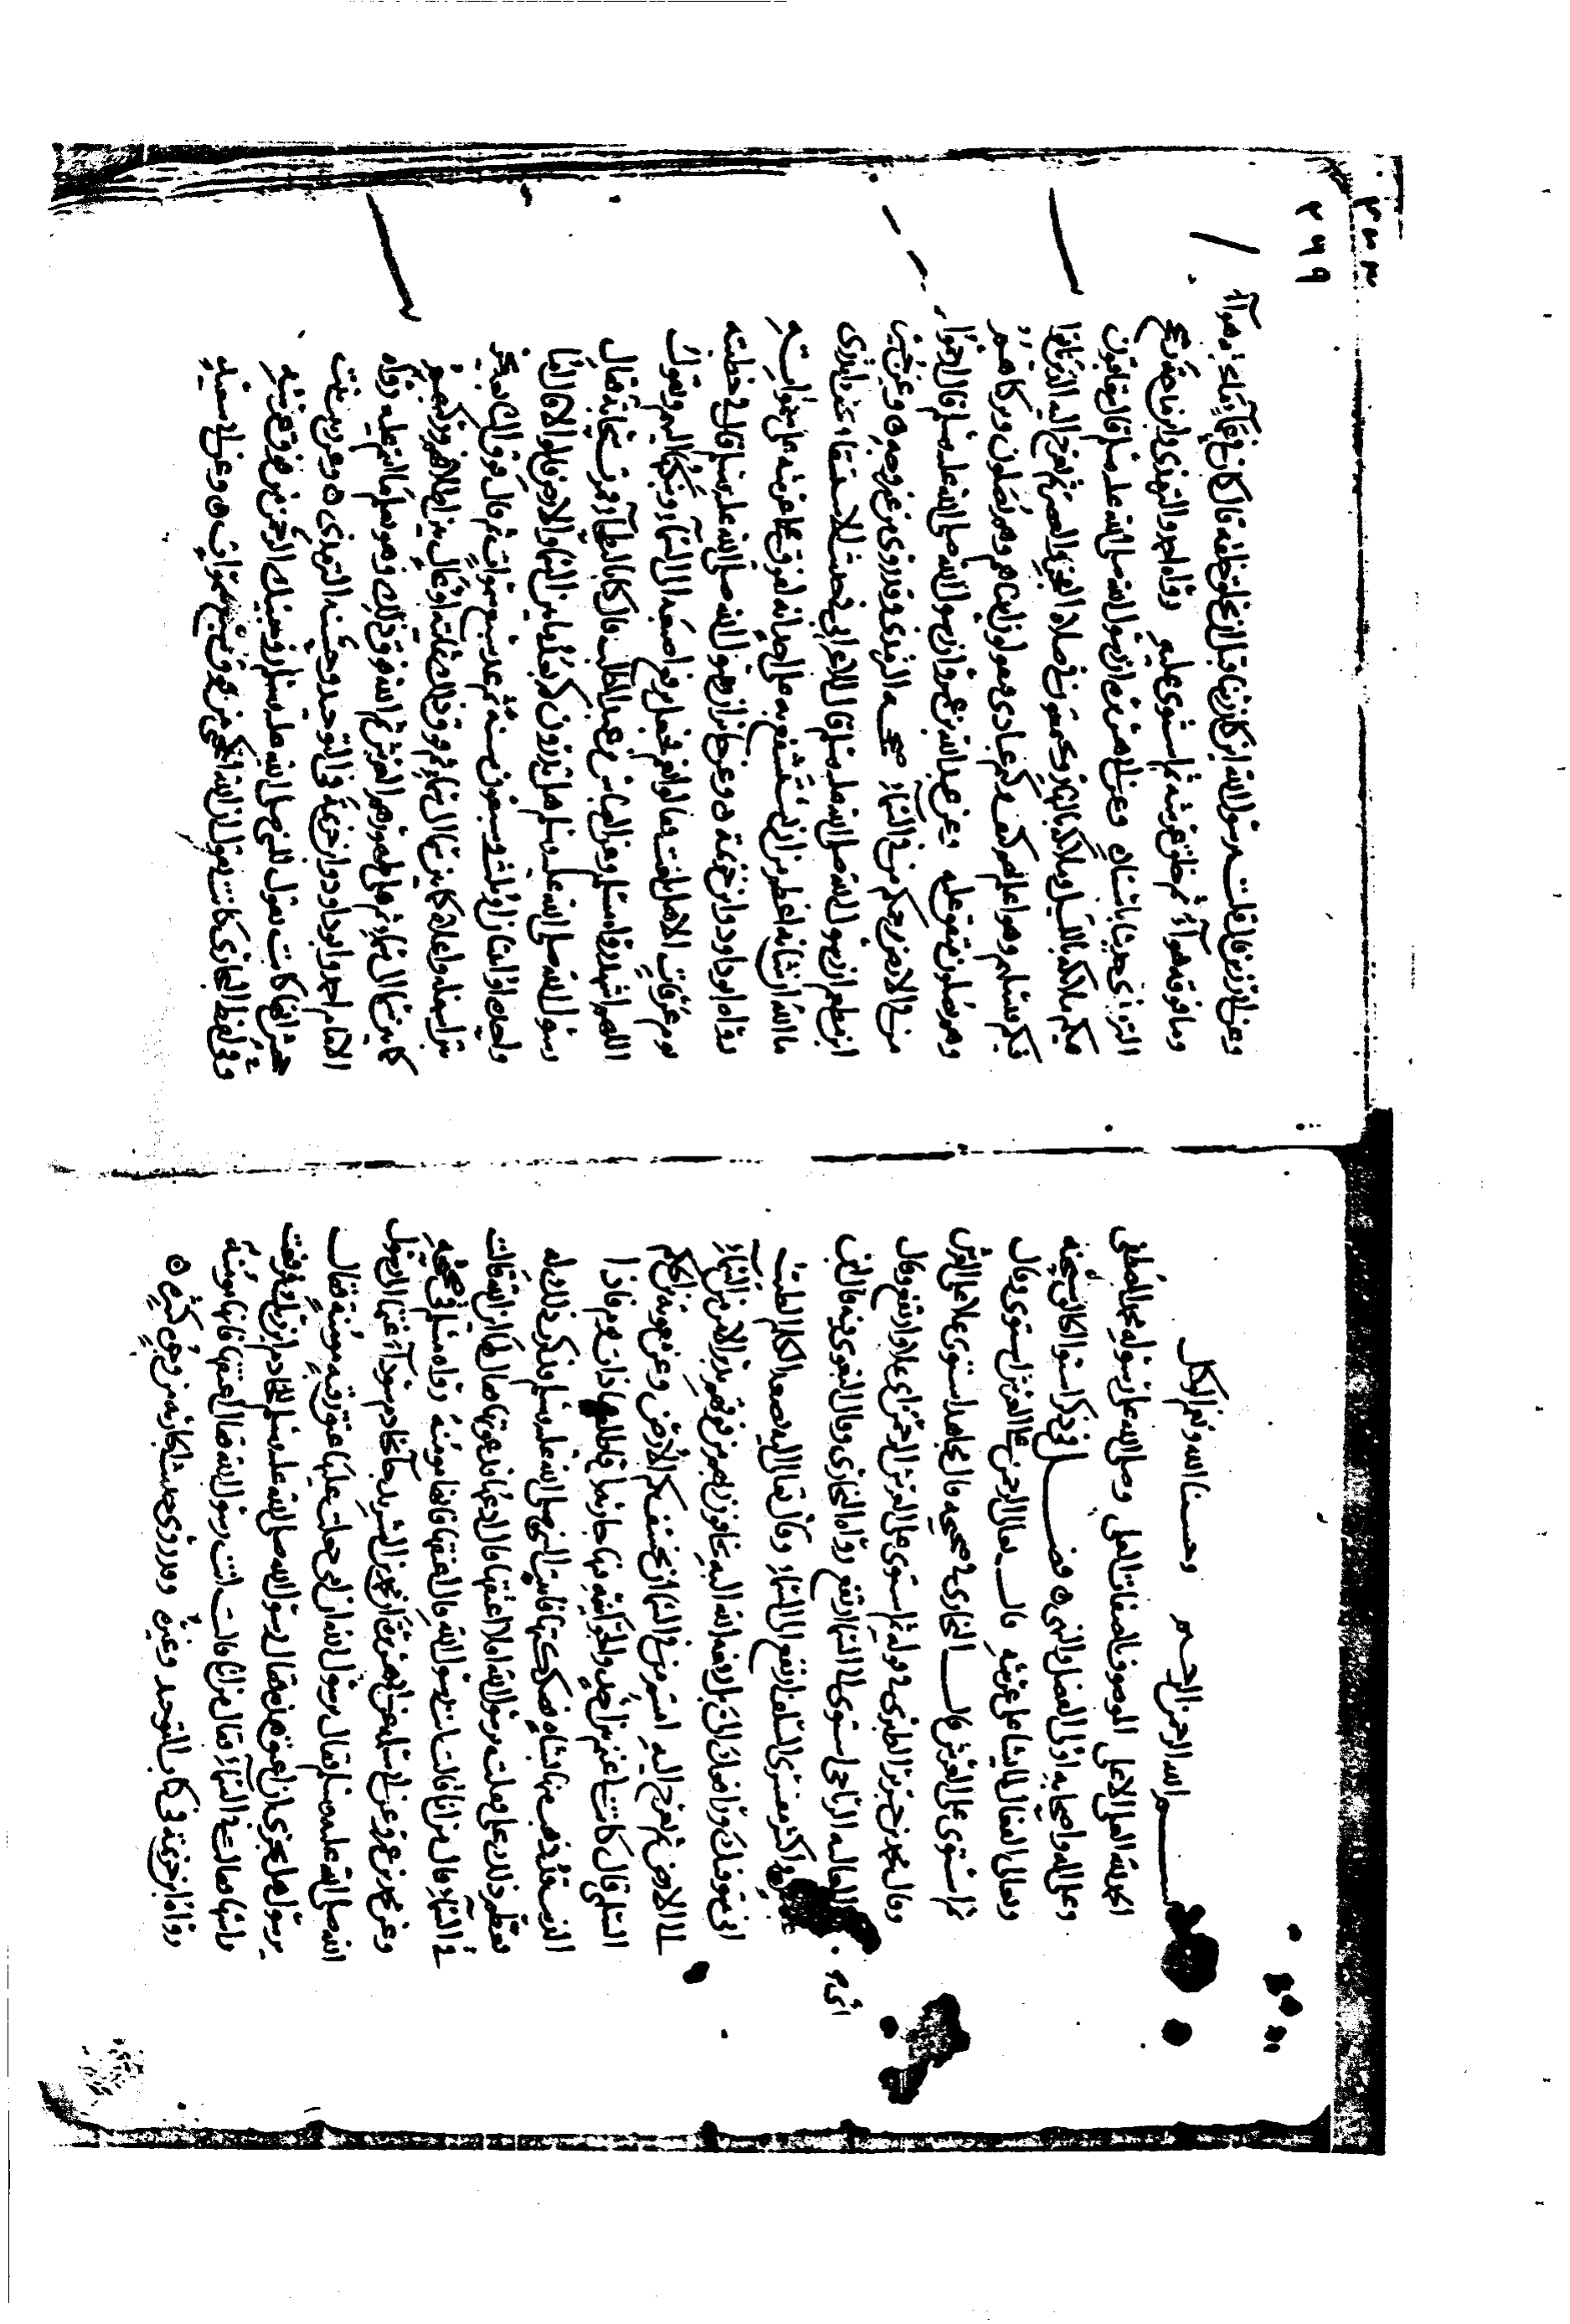 بسم الله الرحمن الرحيم وحسبنا الله ونعم الوكيل
الحمد لله العلي الاعلى الموصوف بالصفات العلى وصلى الله على رسوله محمد المصطفى
وعلى آله واصحابه اولى الفضل والنهى ٥ فصل في ذكر استوا الله سبحنه
وتعالى على عرشه قال الله تعالى الرحمن على العرش استوى وقال
ثم استوى على العرش قال البخاري في صحيحه قال مجاهد استوى علا على العرش
وقال محمد بن جرير الطبري في قوله ثم استوى على العرش الرحمن اي علا وارتفع وقال
ابو العاليه الرياحي استوى الى السما ارتفع رواه البخاري وقال البغوي فيه قال ابن
عباس واكثر مفسري السلف ارتفع الى السماء وقال تعالى اليه يصعد الكلم الطيب
اني متوفيك ورافعك الي بل رفعه الله اليه يخافون ربهم من فوقهم يدبر الامر من السماء
الى الارض ثم يعرج اليه امنتم من في السماء ان يخسف بكم الارض وعن معوية بن الحكم
السلمي قال كانت لي غنم بين احد والجوانية فيها جارية لي فاطلعتها ذات يوم فاذا
الذيب قد ذهب منها بشاه فصككتها فاتيت النبي صلى الله عليه وسلم فذكرت ذلك له
فعظم ذلك علي فقلت يرسول الله افلا اعتقها قال ادعها فدعوتها فقال لها اين الله قالت
في السماء قال من انا قالت انت رسول الله قال اعتقها فانها مومنة رواه مسلم في صحيحه
وعن محمد بن عمرو عن ابي سلمه عن ابي هريرة ان محمد بن الشريد جاء بخادم سوداء الى رسول
الله صلى الله عليه وسلم فقال يرسول الله ان امي جعلت عليها عتق رقبة مومنة فقال
يرسول الله هل يجزي ان اعتق هذه فقال رسول الله صلى الله عليه وسلم للخادم اين ربك فرفعت
راسها فقالت في السماء فقال من انا قالت انت رسول الله فقال اعتقها فانها مومنة
رواه ابن خزيمة في كتاب التوحيد وغيره وقد روي حديث الجارية من وجوه كثيرة ٥
٢٦٩
وعن ابي رزين قال قلت يرسول الله اين كان ربنا قبل ان يخلق خلقه قال كان في عماء ما تحته هواء
وما فوقه هواء ثم خلق عرشه ثم استوى عليه رواه احمد والترمذي وابن ماجه
وعن ابي هريرة ان رسول الله صلى الله عليه وسلم قال يتعاقبون
فيكم ملائكة بالليل وملائكة بالنهار ويجتمعون في صلاة الفجر والعصر ثم يعرج اليه الذين باتوا
فيكم فيسلهم وهو اعلم بهم كيف تركتم عبادي فيقولون اتيناهم وهم يصلون وتركناهم
وهم يصلون متفق عليه وعن عبد الله بن عمرو ان رسول الله صلى الله عليه وسلم قال ارحموا
من في الارض يرحمكم من في السماء صححه الترمذي وقد روي من غير وجه ٥ وعن جبير
ابن مطعم ان رسول الله صلى الله عليه وسلم قال للاعرابي في حديث الاستسقاء ويحك اتدري
ما الله ان شانه اعظم من ان يستشفع به على احد انه لفوق سماواته على عرشه
رواه ابو داود وابن خزيمة ٥ وعن جابر ان رسول الله صلى الله عليه وسلم قال في خطبته
يوم عرفات الا هل بلغت قالوا نعم فجعل يرفع اصبعه الى السماء وينكتها اليهم ويقول
اللهم اشهد رواه مسلم وعن العباس بن عبد المطلب قال كنا بالبطحاء فمرت سحابة فقال
رسول الله صلى الله عليه وسلم هل تدرون كم بعد ما بين السماء والارض قالوا لا قال اما
واحدة او اثنتان او ثلث وسبعون سنة ثم عد سبع سموات ثم قال فوق السابعة بحر
بين اسفله واعلاه كما بين سما الى سما ثم فوق ذلك ثمانية اوعال بين اظلافهن وركبهن
كما بين سما الى سما ثم على ظهورهم العرش ثم الله فوق ذلك وهو يعلم ما انتم عليه رواه
الامام احمد وابو داود وابن خزيمة في التوحيد وحسنه الترمذي ٥ وعن زينب بنت
جحش انها كانت تقول للنبي صلى الله عليه وسلم زوجنيك الرحمن من فوق عرشه
وفي لفظ البخاري كانت تقول ان الله انكحني من فوق سبع سموات ٥ وعن ابي سعيد